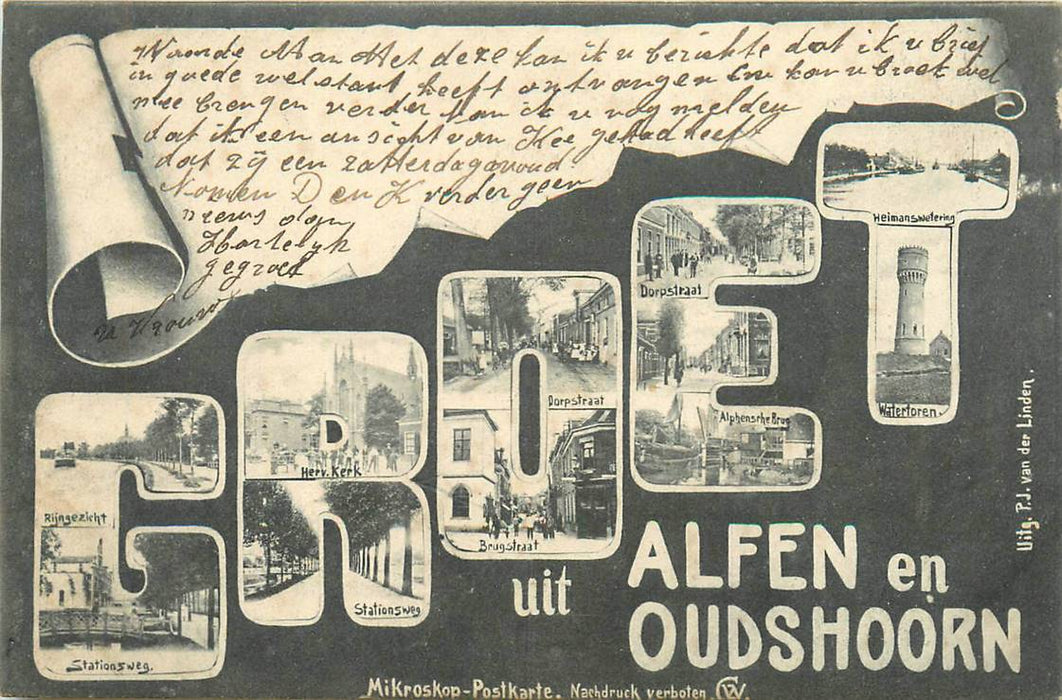 Waarde Man Met deze kan ik u berichte dat ik u brief
in goede welstant heeft ontvangen En kan u broek wel
mee brengen verder kan ik u nog melden
dat ik een ansicht van Kee gehad heeft
dat zij een zatterdagavond
Komen D en K verder geen
nieuws dan
Hartelijk
gegroet
u Vrouw
GROET
Heimanswetering
Watertoren.
Dorpstraat
Alphensche Brug
Dorpstraat
Brugstraat
Herv. Kerk
Stationsweg
Rijngezicht
Stationsweg.
uit
ALFEN en
OUDSHOORN
Uitg. P.J. van der Linden.
Mikroskop-Postkarte. Nachdruck verboten.